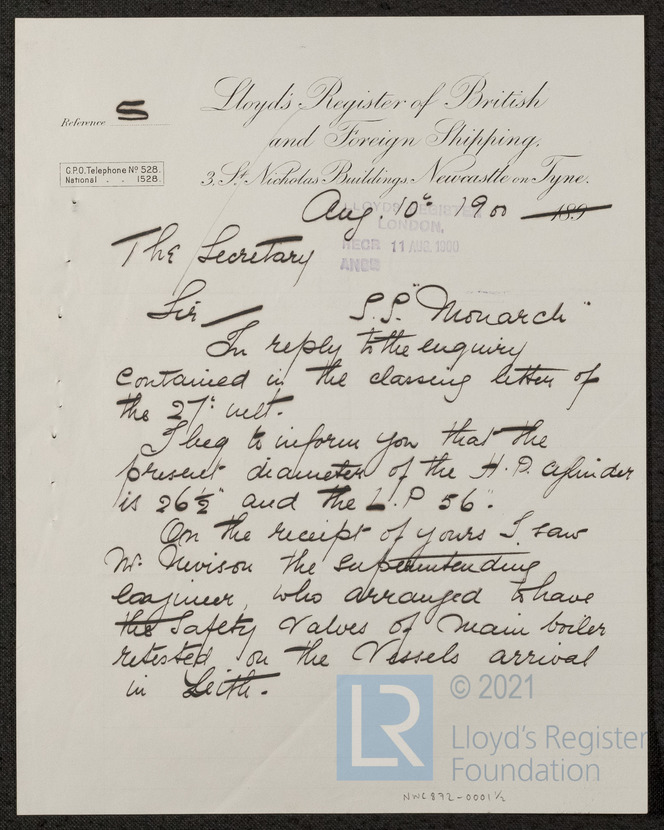 Reference 5
Lloyd's Register of British
and Foreign Shipping.
G.P.O. Telephone Nº 528.
National . . 1528.
3, St Nicholas Buildings, Newcastle on Tyne.
Aug. 10th 1900 189
LLOYD'S REGISTER
LONDON,
RECR 11 AUG. 1900
ANSD
The Secretary
Sir S.S. "Monarch"
In reply to the enquiry
contained in the classing letter of
the 27th ult.
I beg to inform you that the
present diameter of the H.P. cylinder
is 26½" and the L.P 56".
On the receipt of yours I saw
Mr. Nevison the superintending
engineer, who arranged to have
the Safety Valves of main boiler
retested on the Vessels arrival
in Leith.
© 2021
LR
Lloyd's Register
Foundation
NWC872-0001½